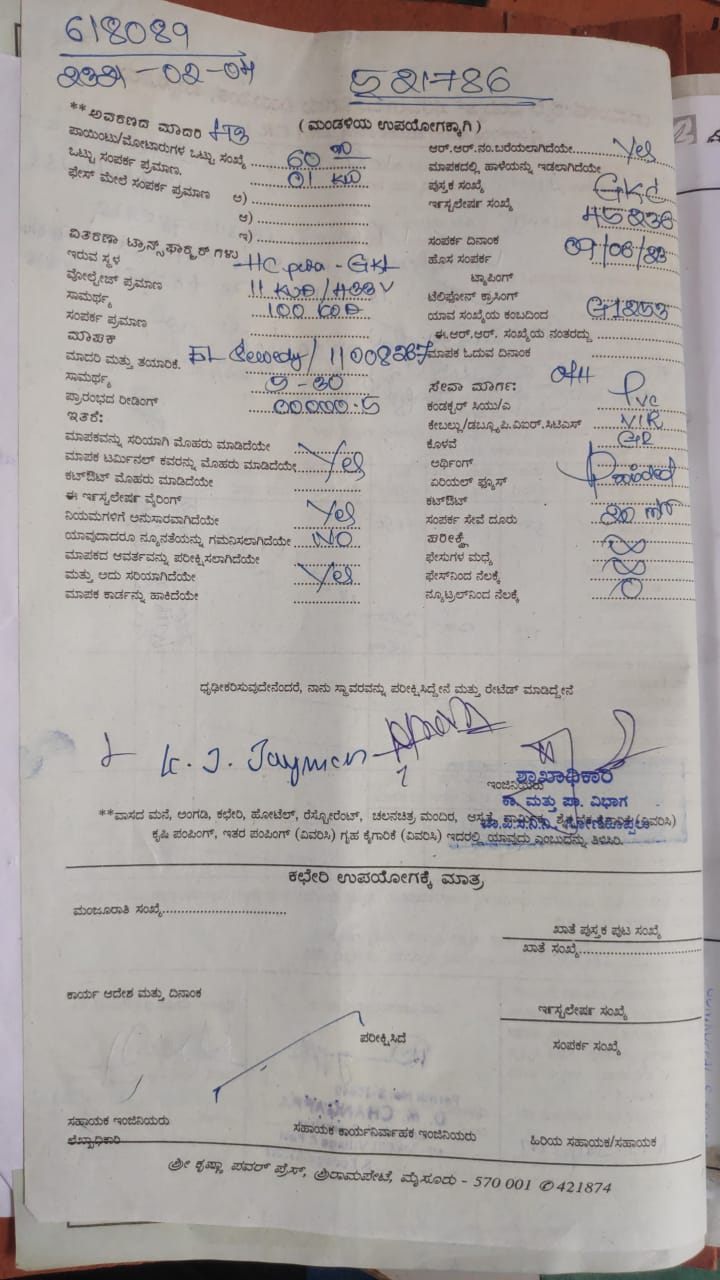 618089
521786
**ಆವರಣದ ಮಾದರಿ
(ಮಂಡಳಿಯ ಉಪಯೋಗಕ್ಕಾಗಿ)
ಪಾಯಿಂಟು/ಮೋಟಾರುಗಳ ಒಟ್ಟು ಸಂಖ್ಯೆ 60
ಒಟ್ಟು ಸಂಪರ್ಕ ಪ್ರಮಾಣ. 01 KW
ಫೇಸ್ ಮೇಲೆ ಸಂಪರ್ಕ ಪ್ರಮಾಣ ಅ)
ಆ)
ಇ)
ವಿತರಣಾ ಟ್ರಾನ್ಸ್‌ಫಾರ್ಮರ್‌ಗಳು
ಇರುವ ಸ್ಥಳ
ವೋಲ್ಟೇಜ್ ಪ್ರಮಾಣ
ಸಾಮರ್ಥ್ಯ 100
ಸಂಪರ್ಕ ಪ್ರಮಾಣ
ಮಾಪಕ
ಮಾದರಿ ಮತ್ತು ತಯಾರಿಕೆ.
ಸಾಮರ್ಥ್ಯ 5-30
ಪ್ರಾರಂಭದ ರೀಡಿಂಗ್ 00000.5
ಇತರೆ:
ಮಾಪಕವನ್ನು ಸರಿಯಾಗಿ ಮೊಹರು ಮಾಡಿದೆಯೇ
ಮಾಪಕ ಟರ್ಮಿನಲ್ ಕವರನ್ನು ಮೊಹರು ಮಾಡಿದೆಯೇ Yes
ಕಟ್‌ಔಟ್ ಮೊಹರು ಮಾಡಿದೆಯೇ
ಈ ಇನ್ಸ್ಟಲೇಷನ್ ವೈರಿಂಗ್
ನಿಯಮಗಳಿಗೆ ಅನುಸಾರವಾಗಿದೆಯೇ Yes
ಯಾವುದಾದರೂ ನ್ಯೂನತೆಯನ್ನು ಗಮನಿಸಲಾಗಿದೆಯೇ NO
ಮಾಪಕದ ಆವರ್ತವನ್ನು ಪರೀಕ್ಷಿಸಲಾಗಿದೆಯೇ
ಮತ್ತು ಅದು ಸರಿಯಾಗಿದೆಯೇ Yes
ಮಾಪಕ ಕಾರ್ಡನ್ನು ಹಾಕಿದೆಯೇ
ಆರ್.ಆರ್.ನಂ.ಬರೆಯಲಾಗಿದೆಯೇ Yes
ಮಾಪಕದಲ್ಲಿ ಹಾಳೆಯನ್ನು ಇಡಲಾಗಿದೆಯೇ
ಪುಸ್ತಕ ಸಂಖ್ಯೆ
ಇನ್ಸ್ಟಲೇಷನ ಸಂಖ್ಯೆ 45236
ಸಂಪರ್ಕ ದಿನಾಂಕ
ಹೊಸ ಸಂಪರ್ಕ
ಟ್ಯಾಪಿಂಗ್
ಟೆಲಿಫೋನ್ ಕ್ರಾಸಿಂಗ್
ಯಾವ ಸಂಖ್ಯೆಯ ಕಂಬದಿಂದ
ಈ.ಆರ್.ಆರ್. ಸಂಖ್ಯೆಯ ನಂತರದ್ದು
ಮಾಪಕ ಓದುವ ದಿನಾಂಕ
ಸೇವಾ ಮಾರ್ಗ:
ಕಂಡಕ್ಟರ್ ಸಿಯು/ಎ PVC
ಕೇಬಲ್ಲು/ಡಬ್ಲ್ಯೂ.ಪಿ.ವಿಐಆರ್.ಸಿಟಿಎಸ್ VIR
ಕೊಳವೆ
ಅರ್ಥಿಂಗ್
ಏರಿಯಲ್ ಫ್ಯೂಸ್
ಕಟ್‌ಔಟ್
ಸಂಪರ್ಕ ಸೇವೆ ದೂರು
ಪರೀಕ್ಷೆ
ಫೇಸುಗಳ ಮಧ್ಯೆ ∞
ಫೇಸ್‌ನಿಂದ ನೆಲಕ್ಕೆ ∞
ನ್ಯೂಟ್ರಲ್‌ನಿಂದ ನೆಲಕ್ಕೆ 0
ಧೃಢೀಕರಿಸುವುದೇನೆಂದರೆ, ನಾನು ಸ್ಥಾವರವನ್ನು ಪರೀಕ್ಷಿಸಿದ್ದೇನೆ ಮತ್ತು ರೇಟೆಡ್ ಮಾಡಿದ್ದೇನೆ
ಇಂಜಿನಿಯರು
ಶಾಖಾಧಿಕಾರಿ
ಕಾ. ಮತ್ತು ಪಾ. ವಿಭಾಗ
**ವಾಸದ ಮನೆ, ಅಂಗಡಿ, ಕಛೇರಿ, ಹೋಟೆಲ್, ರೆಸ್ಟೋರೆಂಟ್, ಚಲನಚಿತ್ರ ಮಂದಿರ, ಆಸ್ಪತ್ರೆ, (ವಿವರಿಸಿ)
ಕೃಷಿ ಪಂಪಿಂಗ್, ಇತರ ಪಂಪಿಂಗ್ (ವಿವರಿಸಿ) ಗೃಹ ಕೈಗಾರಿಕೆ (ವಿವರಿಸಿ) ಇದರಲ್ಲಿ ಯಾವುದು ಎಂಬುದನ್ನು ತಿಳಿಸಿರಿ.
ಕಛೇರಿ ಉಪಯೋಗಕ್ಕೆ ಮಾತ್ರ
ಮಂಜೂರಾತಿ ಸಂಖ್ಯೆ
ಖಾತೆ ಪುಸ್ತಕ ಪುಟ ಸಂಖ್ಯೆ
ಖಾತೆ ಸಂಖ್ಯೆ
ಕಾರ್ಯ ಆದೇಶ ಮತ್ತು ದಿನಾಂಕ
ಇನ್ಸ್ಟಲೇಷನ ಸಂಖ್ಯೆ
ಪರೀಕ್ಷಿಸಿದೆ
ಸಂಪರ್ಕ ಸಂಖ್ಯೆ
ಸಹಾಯಕ ಇಂಜಿನಿಯರು
ಲೆಖ್ಖಾಧಿಕಾರಿ
ಸಹಾಯಕ ಕಾರ್ಯನಿರ್ವಾಹಕ ಇಂಜಿನಿಯರು
ಹಿರಿಯ ಸಹಾಯಕ/ಸಹಾಯಕ
ಶ್ರೀ ಕೃಷ್ಣಾ ಪವರ್ ಪ್ರೆಸ್, ಶ್ರೀರಾಮಪೇಟೆ, ಮೈಸೂರು - 570 001 ✆ 421874